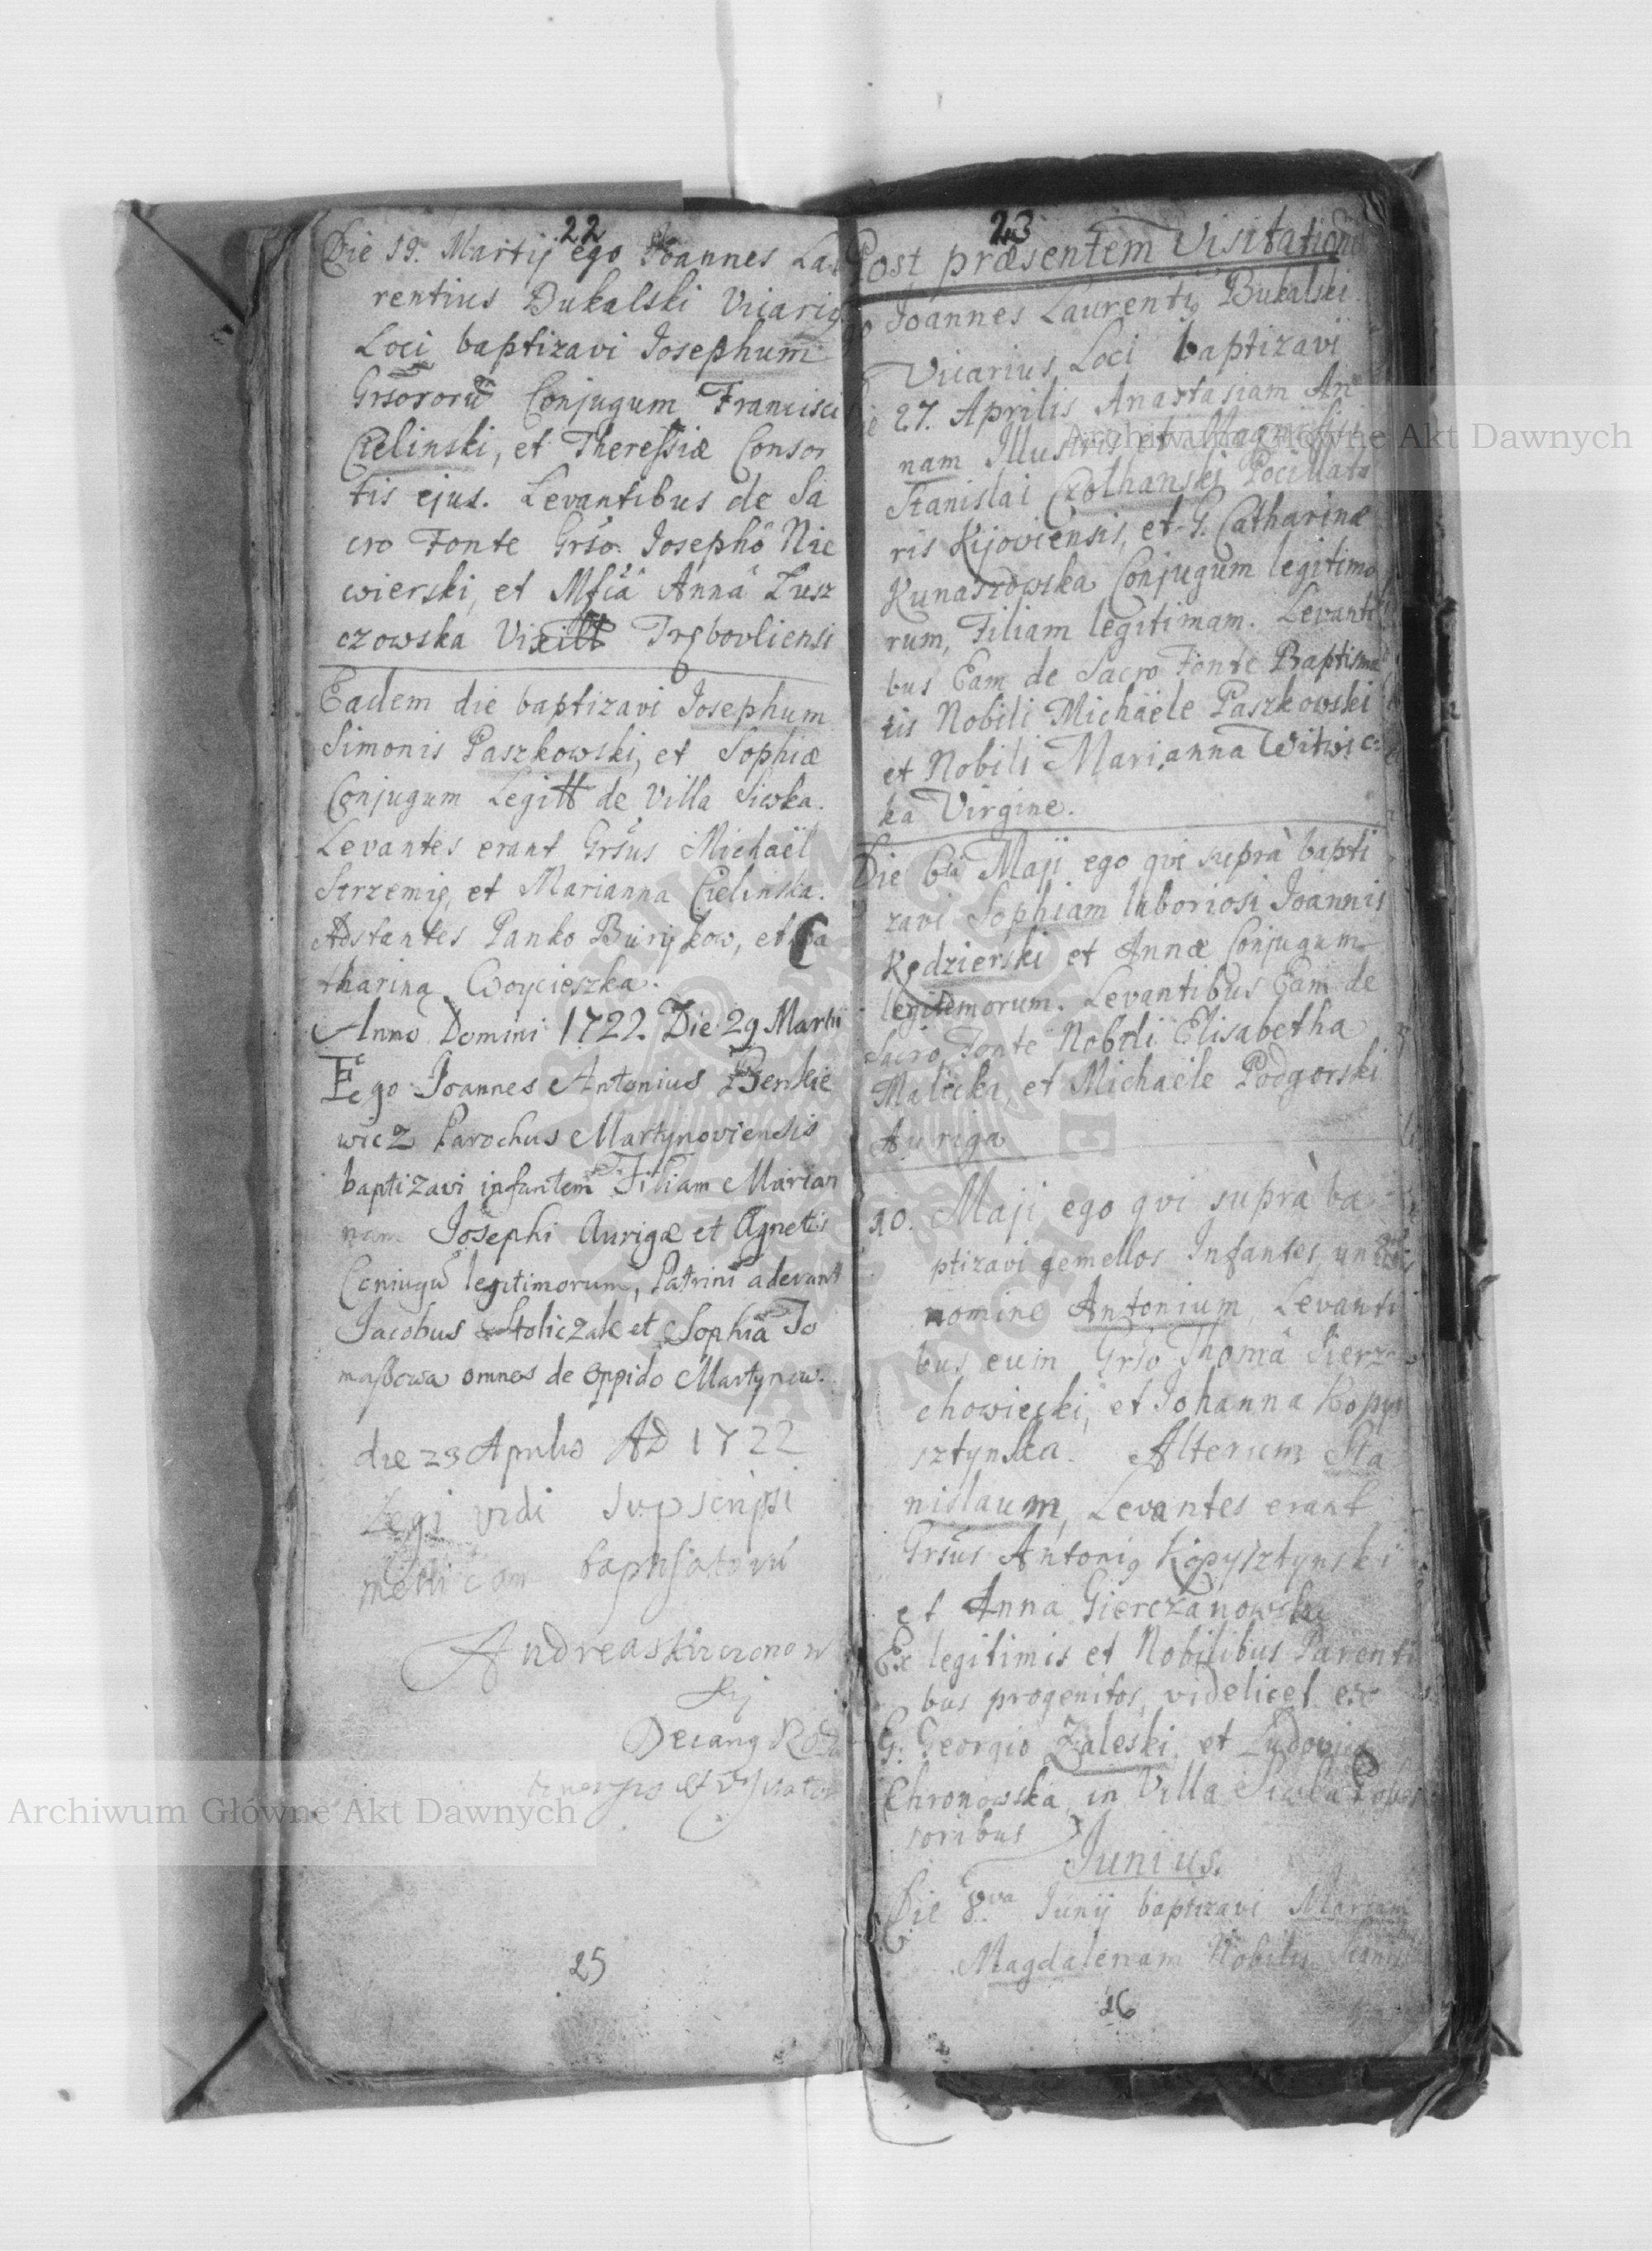 22
Die 19. Martij ego Joannes Lau
rentius Bukalski Vicarig
Loci baptizavi Josephum
Grsororū Conjugum Francisci
Cielinski, et Theressiæ Consor
tis ejus. Levantibus de Sa
cro Fonte Grso. Josephô Nie
wierski, et Mfcâ Annâ Łusz
czowska Trębovliensi
Eadem die baptizavi Josephum
Simonis Paszkowski, et Sophiæ
Conjugum Legitt de Villa Siwka.
Levantes erant Grsus Michaël
Strzemię, et Marianna Cielinska.
Adstantes Panko Burykow, et Ca
tharina Woycieszka.
Anno Domini 1722. Die 29 Martii
Ego Joannes Antonius Benkie
wicz Parochus Martynoviensis
baptizavi infantem Filiam Marian
nam Josephi Aurigæ et Agnetis
Coniugū legitimorum, Patrini aderant
Jacobus Stoliczak et Sophia To
maszowa omnes de Oppido Martynow.
die 23 Aprilis AD 1722
Legi vidi supscripsi
metricam baptisatorū
Andreas
Decang
23
Post præsentem Visitationē
Joannes Laurentig Bukalski
Vicarius Loci baptizavi
27. Aprilis Anastasiam An
nam Illustris et Magnifici
Stanislai Czolhanski Pocillato
ris Kijoviensis, et G. Catharinæ
Kunaszowska Conjugum legitimo
rum, Filiam legitimam. Levanti
bus Eam de Sacro Fonte Baptisma
tis Nobili Michaële Paszkowski
et Nobili Marianna Witwic
ka Virgine.
Die 6ta Maji ego qvi suprà bapti
zavi Sophiam laboriosi Joannis
Kędzierski et Annæ Conjugum
legitimorum. Levantibus Eam de
Sacro Fonte Nobili Elisabetha
Malecka, et Michaële Podgorski
Auriga
10. Maji ego qvi suprà ba
ptizavi gemellos Infantes, unum
nomine Antonium, Levanti
bus eum Grso Thomâ Sierz
chowiecki, et Johanna Kopy
sztynska. Alterum Sta
nislaum, Levantes erant
Grsus Antonig Kopysztynski
et Anna Gierczanowska
Ex legitimis et Nobilibus Parenti
bus progenitos, videlicet ex
G. Georgio Zaleski et Ludovica
Chronowska in Villa Siwka
soribus
Junius.
Die 8va Junij baptizavi Mariam
Magdalenam Nobilis
25
26
Archiwum Główne Akt Dawnych
Archiwum Główne Akt Dawnych